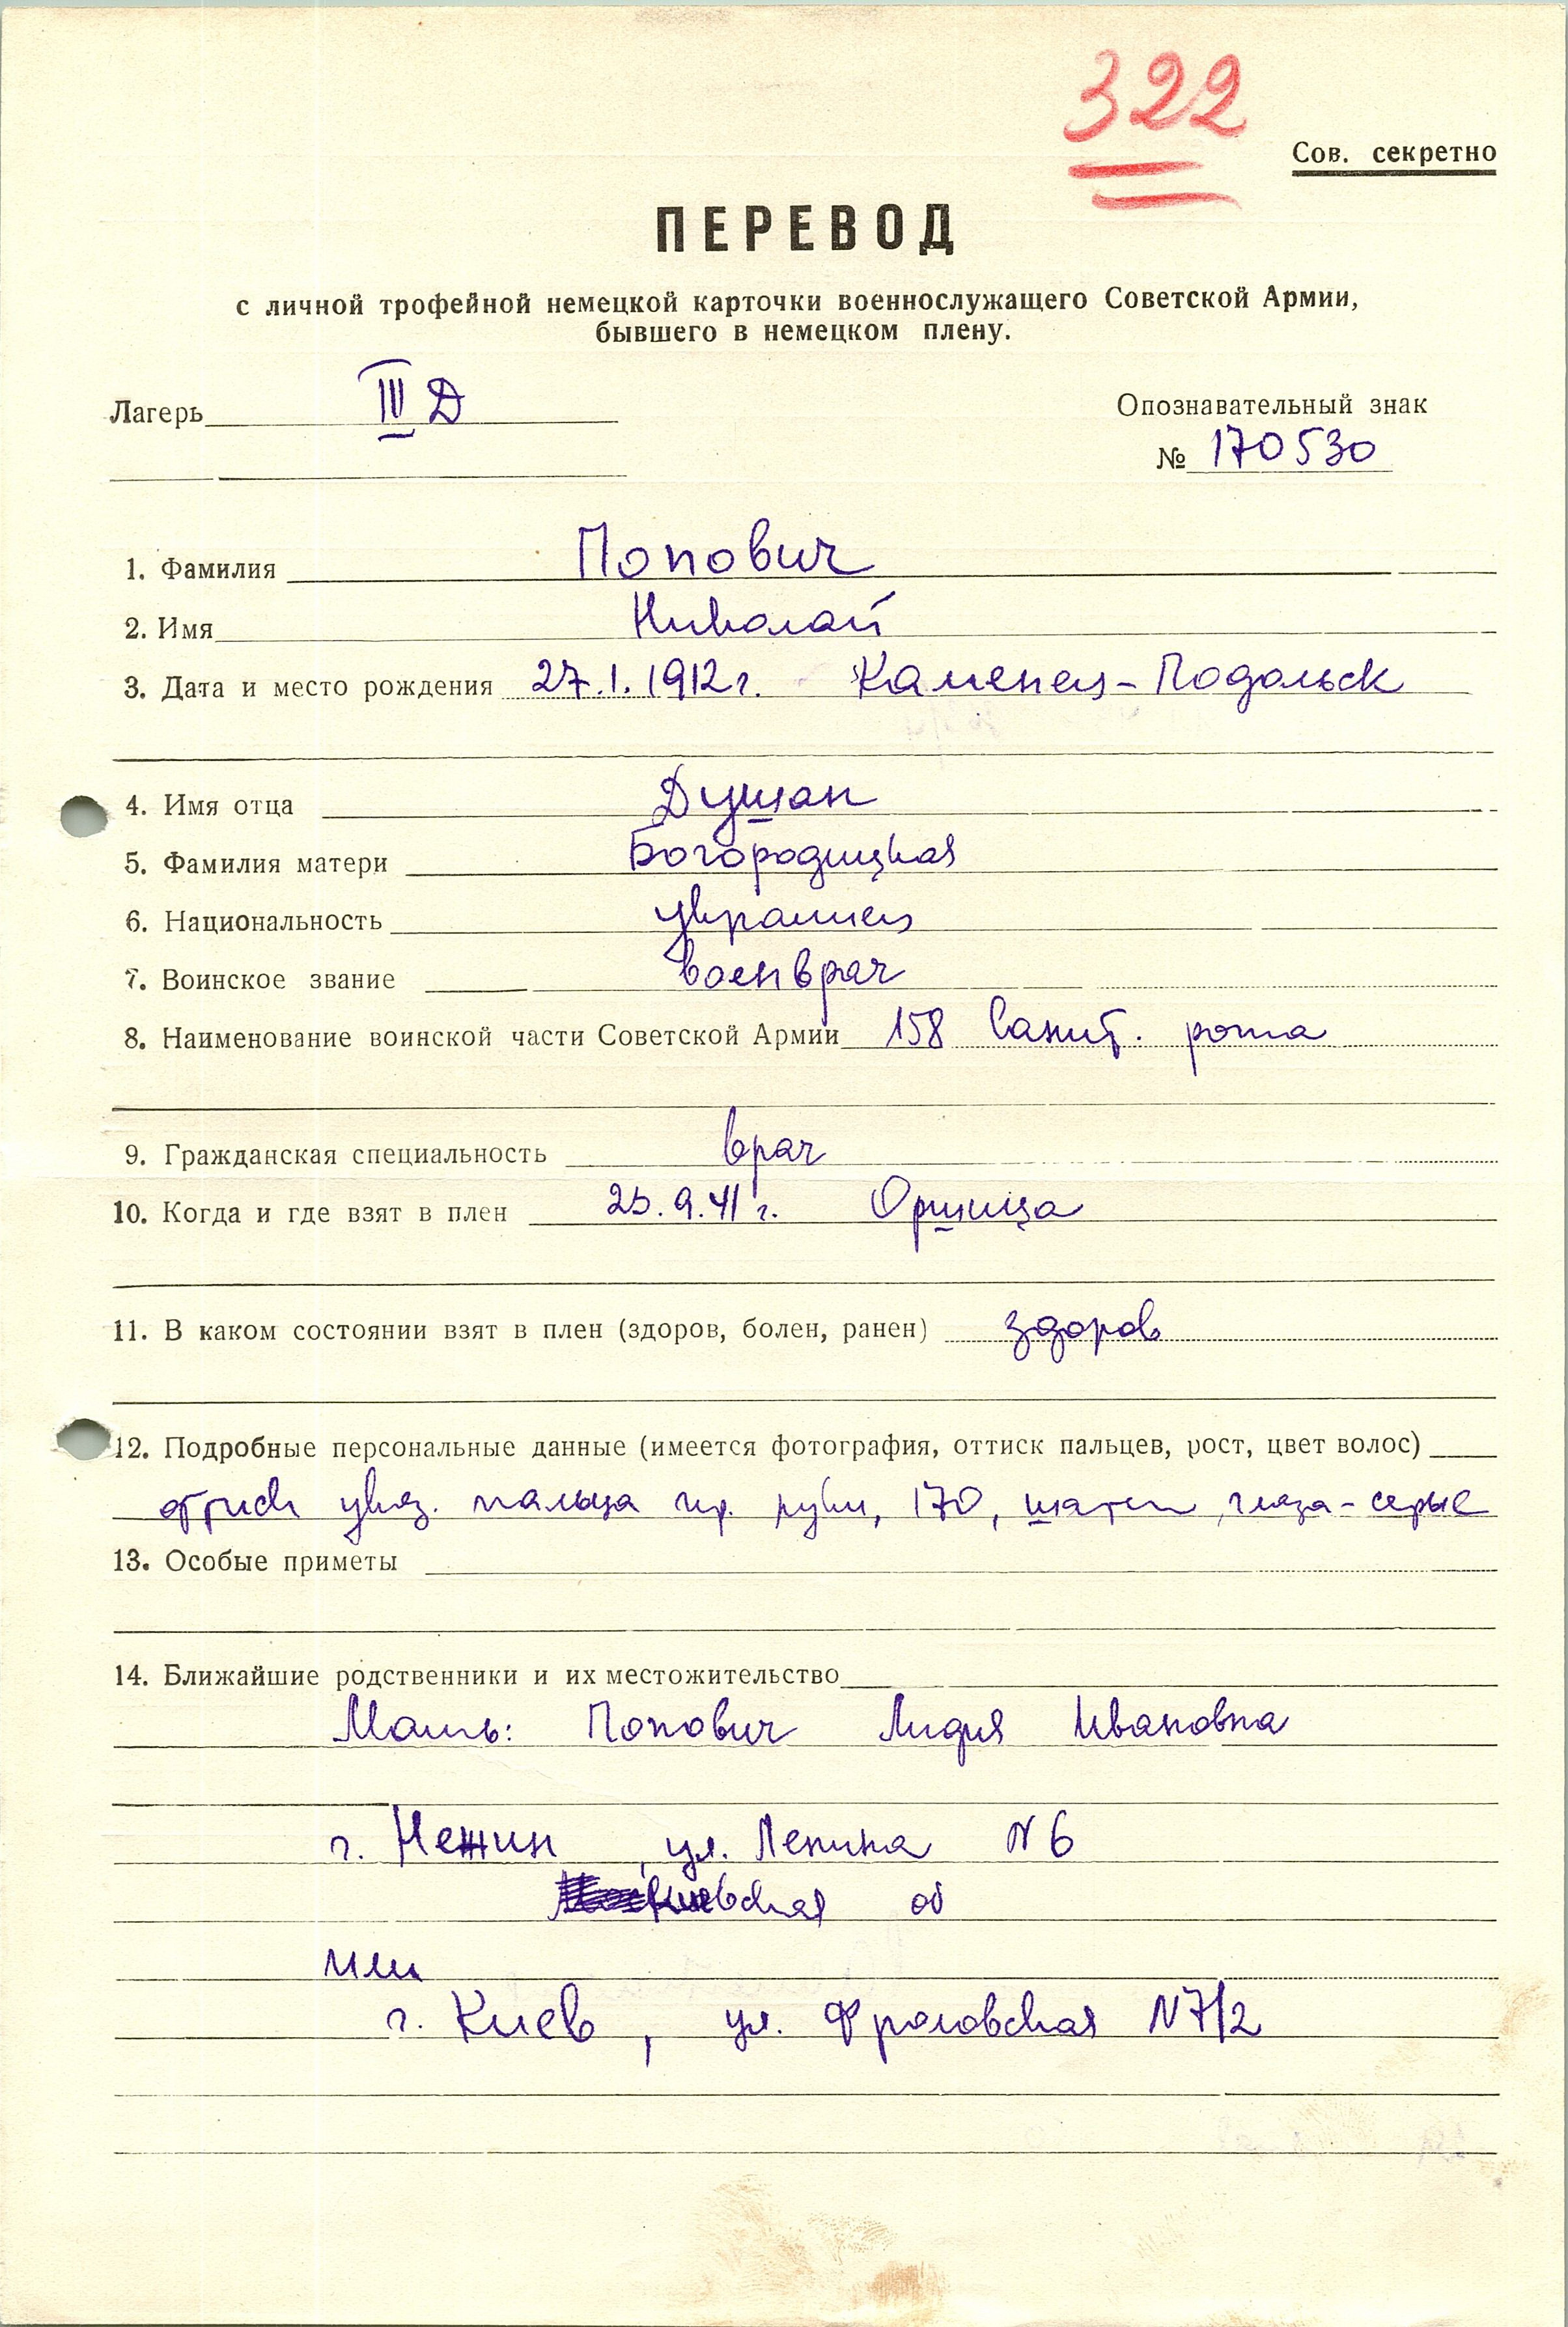 322
Сов. секретно
ПЕРЕВОД
с личной трофейной немецкой карточки военнослужащего Советской Армии,
бывшего в немецком плену.
Лагерь III Д
Опознавательный знак
№ 170530
1. Фамилия Попович
2. Имя Николай
3. Дата и место рождения 27.1.1912г. Каменец-Подольск
4. Имя отца Душан
5. Фамилия матери Богородицкая
6. Национальность украинец
7. Воинское звание военврач
8. Наименование воинской части Советской Армии 158 Санит. рота
9. Гражданская специальность врач
10. Когда и где взят в плен 25.9.41г. Оршица
11. В каком состоянии взят в плен (здоров, болен, ранен) здоров
12. Подробные персональные данные (имеется фотография, оттиск пальцев, рост, цвет волос)
оттиск указ. пальца пр. руки, 170, шатен, глаза - серые
13. Особые приметы
14. Ближайшие родственники и их местожительство
Мать: Попович Лидия Ивановна
г. Нежин, ул. Ленина N 6
об
или
г. Киев, ул. Фроловская N 7/2